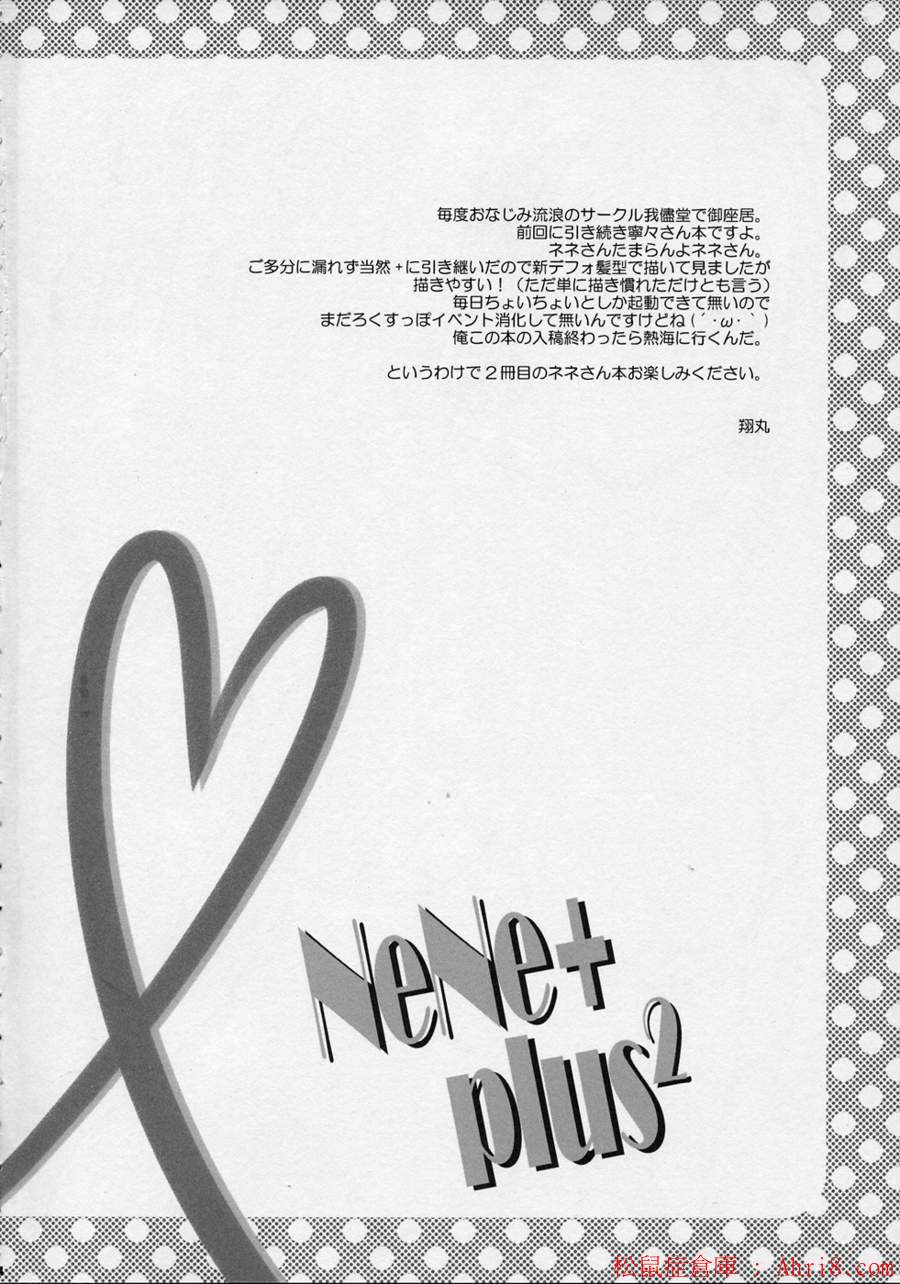 毎度おなじみ流浪のサークル我儘堂で御座居。
前回に引き続き寧々さん本ですよ。
ネネさんたまらんよネネさん。
ご多分に漏れず当然+に引き継いだので新デフォ髪型で描いて見ましたが
描きやすい！（ただ単に描き慣れただけとも言う）
毎日ちょいちょいとしか起動できて無いので
まだろくすっぽイベント消化して無いんですけどね(´・ω・｀)
俺この本の入稿終わったら熱海に行くんだ。
というわけで２冊目のネネさん本お楽しみください。
翔丸
NeNe+
plus2
松鼠症倉庫 : Ahri8.com